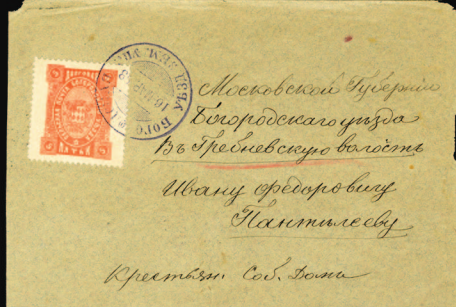 Московской Губернiи
Богородскаго уѣзда
Въ Гребневскую волость
Ивану Федоровичу
Пантилееву
Крестьян. Соб. Домъ